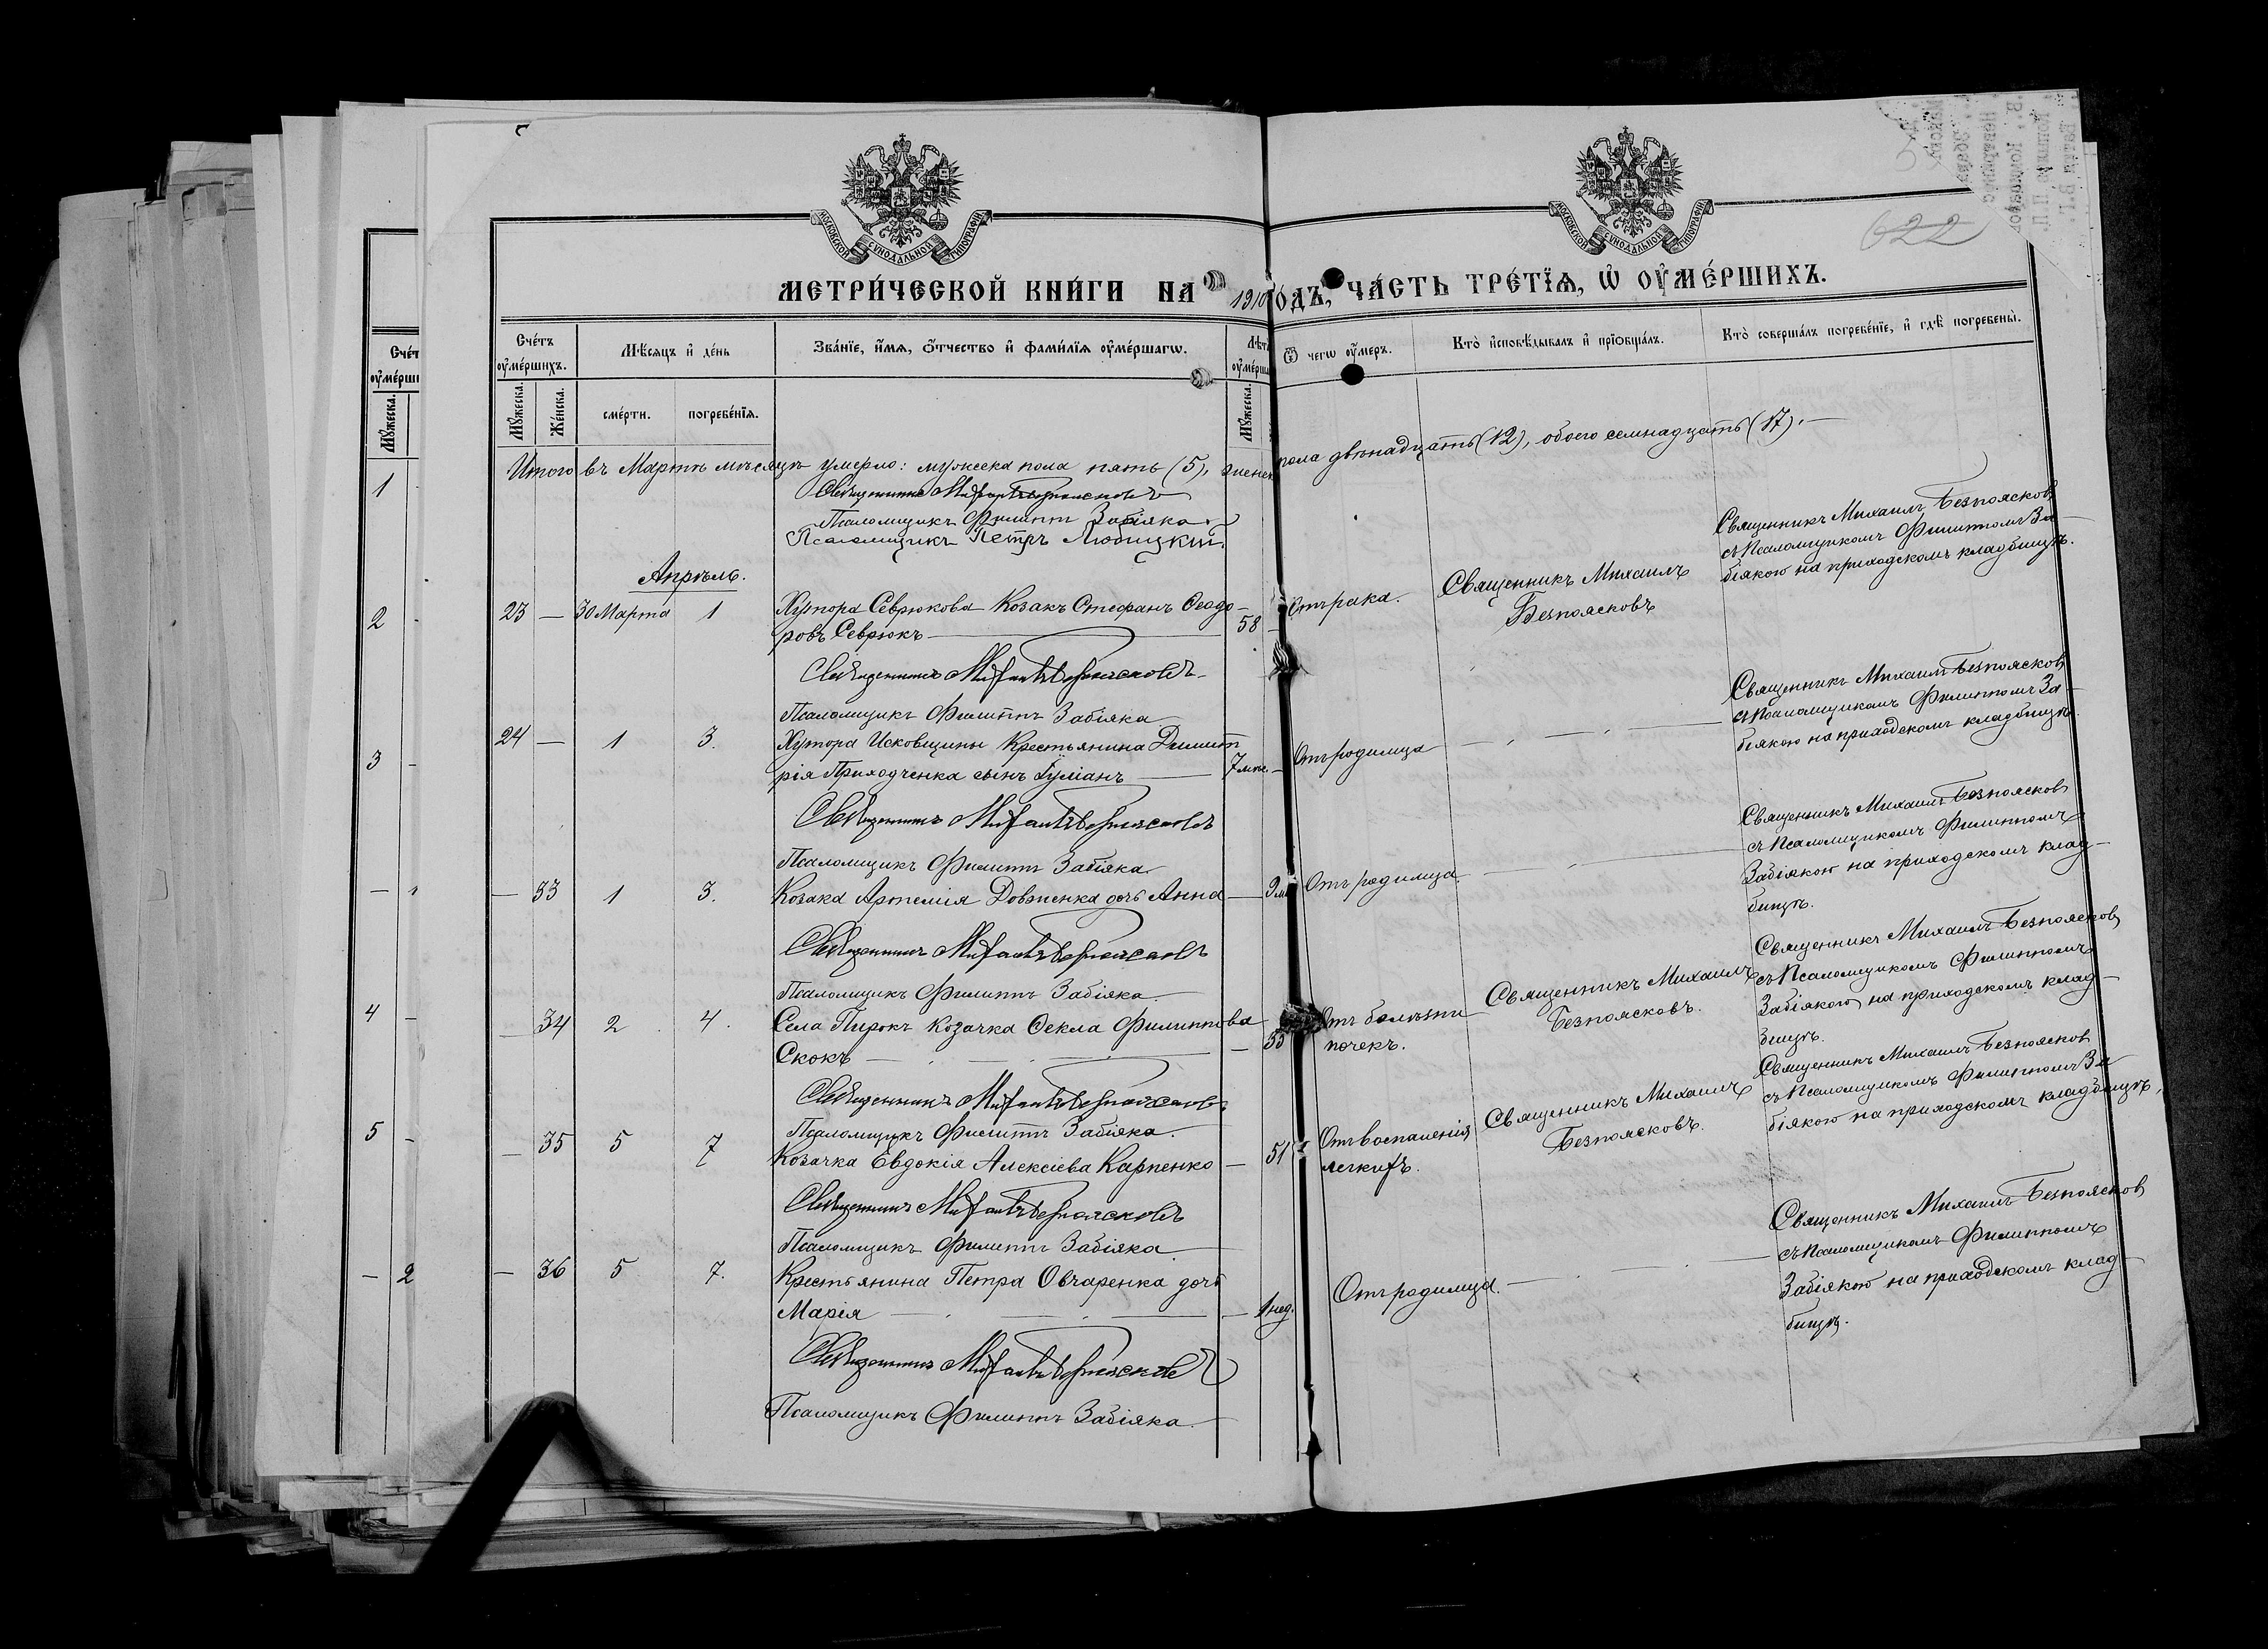 МОСКОВСКОЙ СУНОДАЛЬНОЙ ТИПОГРАФІИ
МОСКОВСКОЙ СУНОДАЛЬНОЙ ТИПОГРАФІИ
622
МЕТРИ́ЧЕСКОЙ КНИ́ГИ НА 1910 ГО́ДЪ, ЧА́СТЬ ТРЕ́ТЇѦ, Ѡ҆ ОУ҆МЕ́РШИХЪ.
Сче́тъ оу҆ме́ршихъ.
Мѣ́сѧцъ и҆ де́нь
Зва́нїе, и҆́мѧ, ѻ҆́тчество и҆ фами́лїѧ оу҆ме́ршагѡ.
Лѣ́та оу҆ме́рша
Ѿ чегѡ̀ оу҆́меръ.
Кто̀ и҆сповѣ́дывалъ и҆ прїѡбща́лъ.
Кто̀ соверша́лъ погребе́нїе, и҆ гдѣ̀ погребены̀.
Мꙋ́жеска.
Же́нска.
сме́рти.
погребе́нїѧ.
Мꙋ́жеска.
Итого въ Мартѣ мѣсяцѣ умерло: мужеска пола пять (5), женск пола двѣнадцать (12), обоего семнадцать (17).
Священникъ Михаилъ Безпоясковъ
Псаломщикъ Филиппъ Забіяка
Псаломщикъ Петръ Любицкій.
Апрѣль.
23 — 30 Марта 1 Хутора Севрюкова Козакъ Стефанъ Ѳеодо-
ровъ Севрюкъ 58 — Отъ рака. Священникъ Михаилъ
Безпоясковъ
Священникъ Михаилъ Безпоясковъ
съ Псаломщикомъ Филиппомъ За-
біякою на приходскомъ кладбищѣ.
Священникъ Михаилъ Безпоясковъ
Псаломщикъ Филиппъ Забіяка
24 — 1 3. Хутора Исковщины Крестьянина Димит
рія Приходченка сынъ Іуліанъ 7 мѣс. — Отъ родимца
Священникъ Михаилъ Безпоясковъ
съ Псаломщикомъ Филиппомъ За-
біякою на приходскомъ кладбищѣ.
Священникъ Михаилъ Безпоясковъ
Псаломщикъ Филиппъ Забіяка
— 33 1 3. Козака Артемія Довженка дочь Анна — 9 м Отъ родимца.
Священникъ Михаилъ Безпоясковъ
съ Псаломщикомъ Филиппомъ
Забіякою на приходскомъ клад-
бищѣ.
Священникъ Михаилъ Безпоясковъ
Псаломщикъ Филиппъ Забіяка.
— 34 2 4. Села Пирокъ Козачка Ѳекла Филиппова
Скокъ — 55 Отъ болѣзни
почекъ.
Священникъ Михаилъ
Безпоясковъ.
Священникъ Михаилъ Безпоясковъ
съ Псаломщикомъ Филиппомъ
Забіякою на приходскомъ клад-
бищѣ.
Священникъ Михаилъ Безпоясковъ
Псаломщикъ Филиппъ Забіяка.
— 35 5 7 Козачка Евдокія Алексіева Карпенко — 51 Отъ воспаленія
легкихъ.
Священникъ Михаилъ
Безпоясковъ.
Священникъ Михаилъ Безпоясковъ
съ Псаломщикомъ Филиппомъ За
біякою на приходскомъ кладбищѣ.
Священникъ Михаилъ Безпоясковъ
Псаломщикъ Филиппъ Забіяка.
— 36 5 7. Крестьянина Петра Овчаренка дочь
Марія — 1 нед. Отъ родимца.
Священникъ Михаилъ Безпоясковъ
съ Псаломщикомъ Филиппомъ
Забіякою на приходскомъ клад-
бищѣ.
Священникъ Михаилъ Безпоясковъ
Псаломщикъ Филиппъ Забіяка.
Сче́т
оу҆ме́рши
Мꙋ́жеска.
1
2
3
4
5
— 2